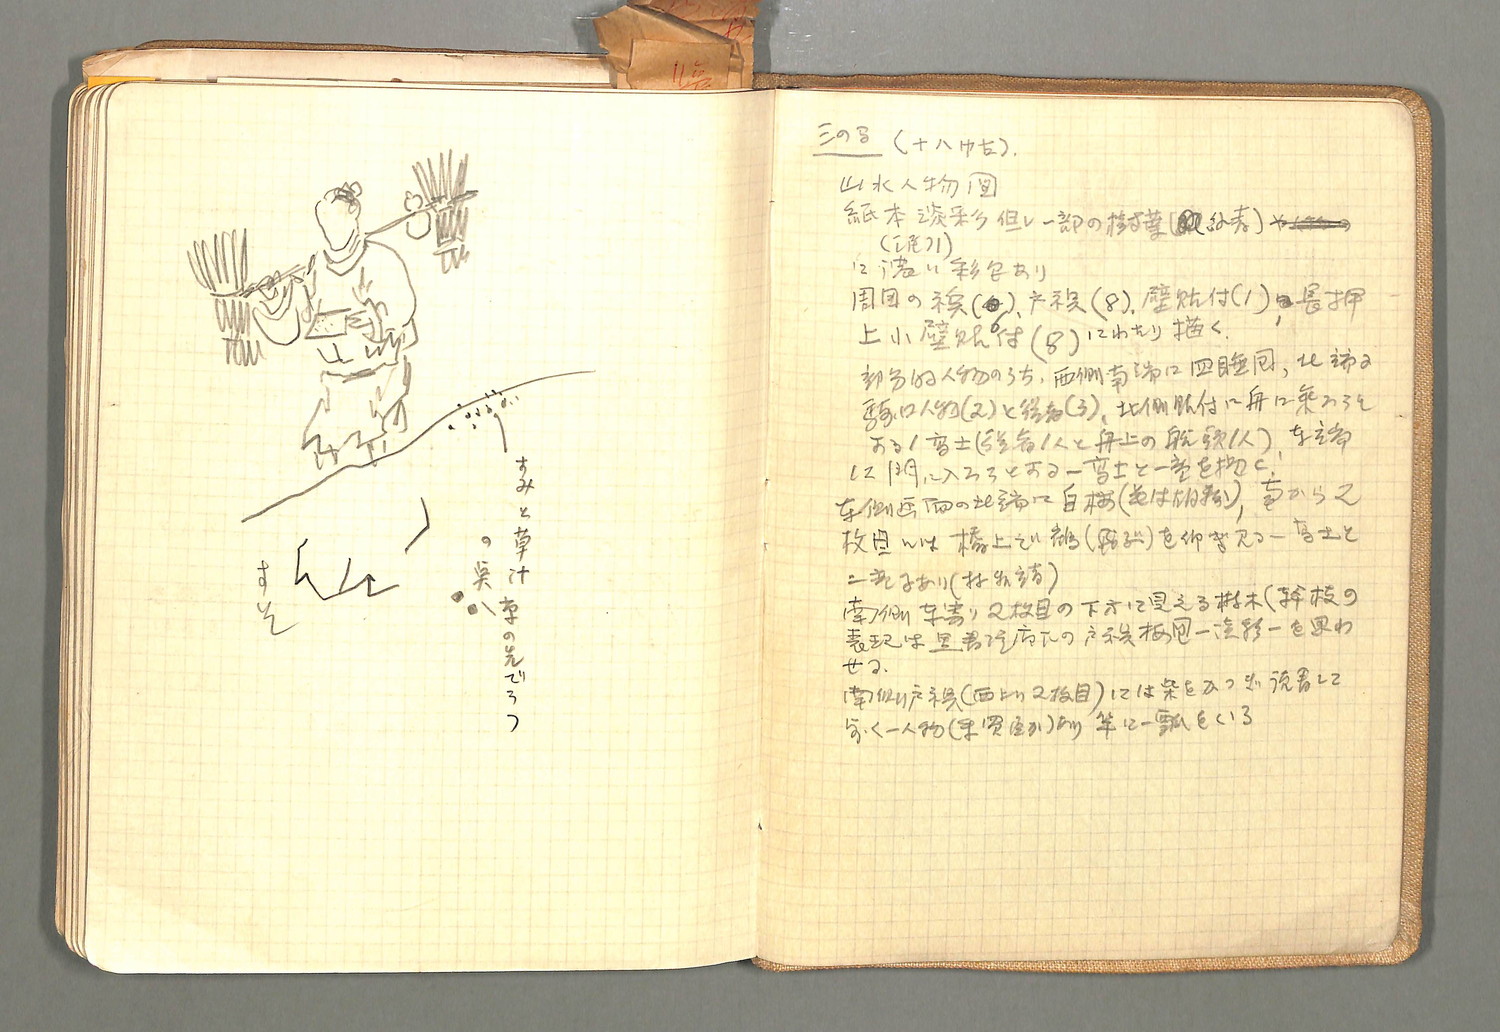 すそ
すみと草汁
の点
草の先でうつ
三の間 (十八帖).
山水人物図
紙本淡彩 但し一部の樹葉(緑青)
に濃い彩色あり
周囲の襖( )、戸襖(8)、壁貼付(1)、長押
上小壁貼付(8)にわたり描く.
部分的人物のうち、西側南端に四睡図、北端に
騎馬人物(2)と従者(3)、北側貼付に舟に乗ろうと
ある1高士(従者1人と舟上の船頭1人)、東端
に門に入ろうとある一高士と一童を描く.
東側画面の北端に白梅(花は胡粉)、南から2
枚目には橋上で鶴(飛ぶ)を仰ぎ見る一高士と
二童子あり(林和靖)
南側東寄り2枚目の下方に見える樹木(幹枝の
表現は 戸襖梅図 を思わ
せる.
南側戸襖(西より2枚目)には柴をかつぎ読書して
ゆく一人物(朱買臣か)あり 竿に一瓢を